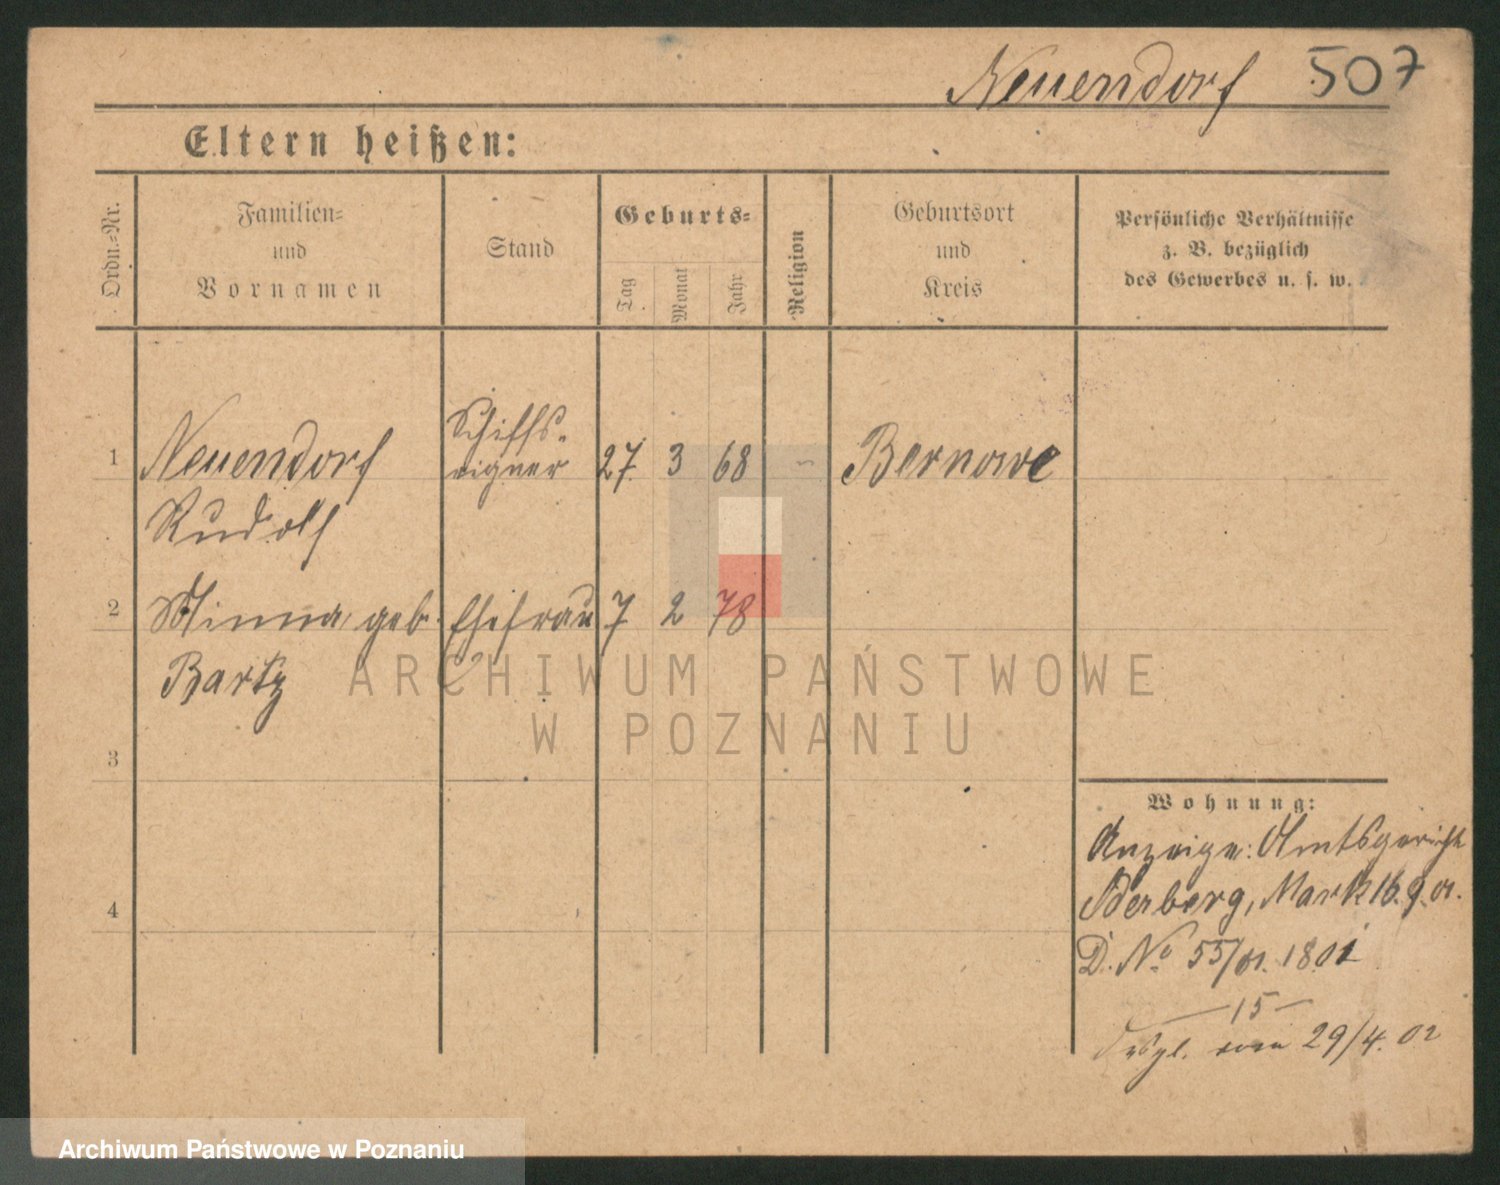 Neuendorf 507
Eltern heißen:
Ordn.-Nr.
Familien-
und
Vornamen
Stand
Geburts-
Tag
Monat
Jahr
Religion
Geburtsort
und
Kreis
Persönliche Verhältnisse
z. B. bezüglich
des Gewerbes u. s. w.
1 Neuendorf Schiffs- eigner 27. 3 68 - Bernowe
Rudolf
2 Minna, geb. Ehefrau 7 2 78
Bartz
ARCHIWUM PAŃSTWOWE
W POZNANIU
3
Wohnung:
Anzeige: Amtsgericht
Oderberg, Mark 16.9.01.
4
D. No 55/01. 18.01
— 15 —
Desgl. vom 29/4. 02
Archiwum Państwowe w Poznaniu